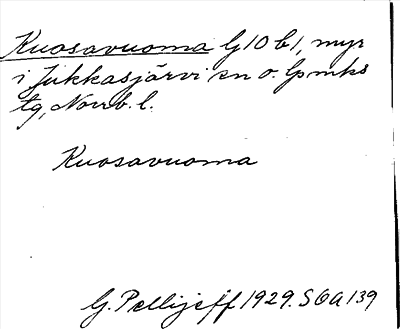 Kuosavuoma G10 b1, myr
i Jukkasjärvi sn o. lpmks
tg, Norrb. l.
Kuosavuoma
G. Pellijeff 1929. SOA 139